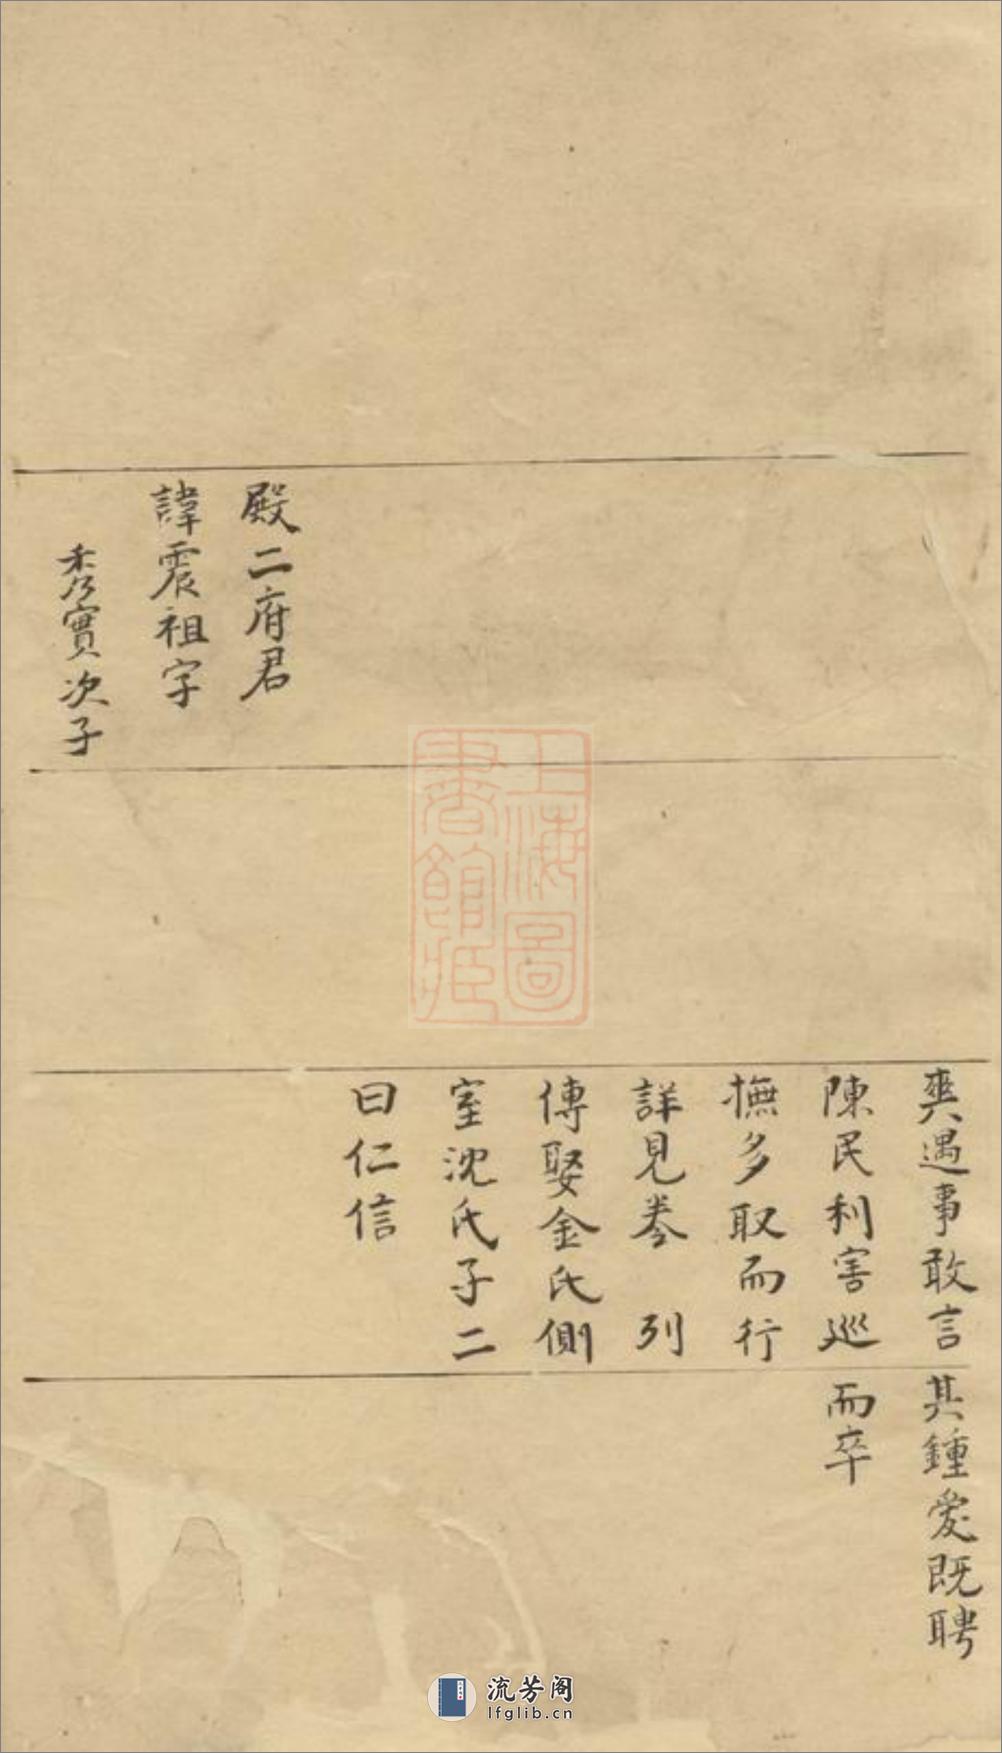 殿二府君
諱震祖字
秀實次子
爽遇事敢言
陳民利害巡
撫多取而行
詳見卷 列
傳娶金氏側
室沈氏子二
曰仁信
其鍾愛既聘
而卒
上海圖
書館藏
流芳阁
lfglib.cn